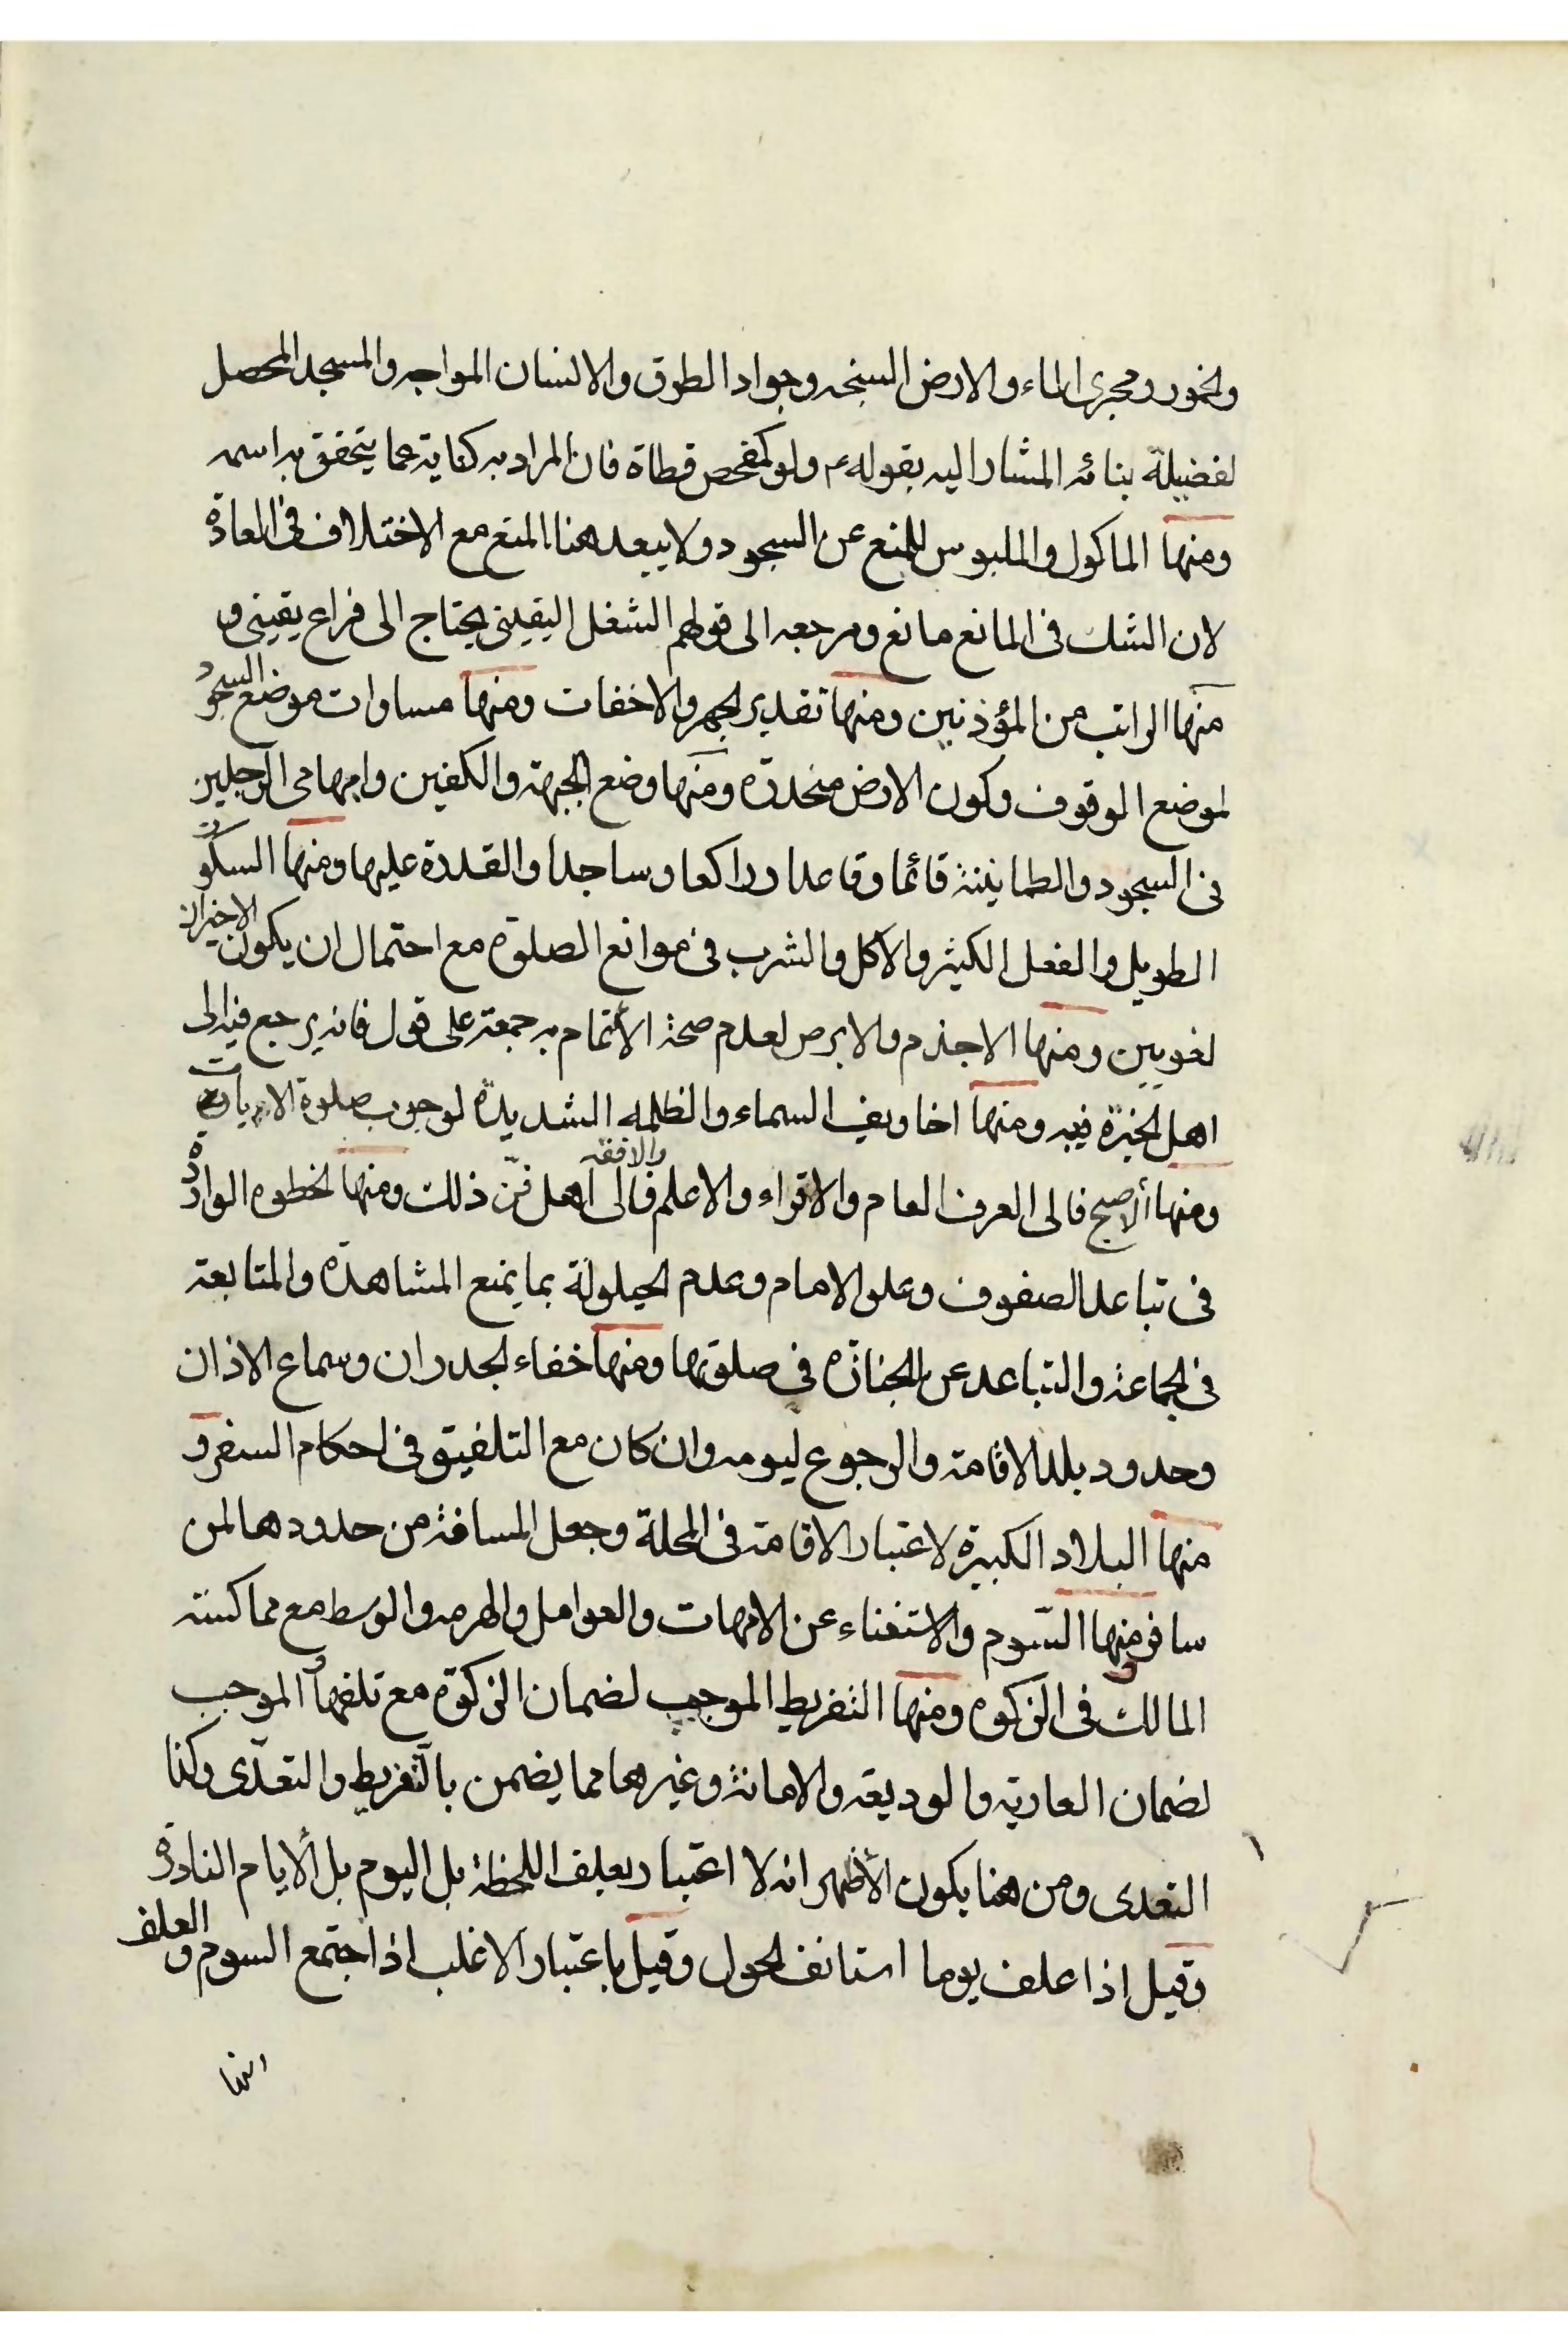 والخمور ومجرى الماء والارض السبخه وجواد الطرق والانسان المواجه والمسجد المحصل
لفضيلة بنائه المشار اليه بقوله ع ولو كمفحص قطاة فان المراد به كناية عما يتحقق به اسمه
ومنها الماكول والملبوس للمنع عن السجود ولا يبعد هنا المنع مع الاختلاف فى العادة
لان الشك فى المانع مانع ومرجعه الى قولهم الشغل اليقينى يحتاج الى فراغ يقينى و
منها الراتب من المؤذنين ومنها تقدير الجهر والاخفات ومنها مساوات موضع السجود
لموضع الوقوف وكون الارض منحدرة ومنها وضع الجبهة والكفين وابهامى الرجلين
فى السجود والطمانينة قائما وقاعدا وراكعا وساجدا والقدرة عليها ومنها السكوت
الطويل والفعل الكثير والاكل والشرب فى موانع الصلوة مع احتمال ان يكون الاخيران
لغويين ومنها الاجذم والابرص لعدم صحة الأتمام به جمعة على قول فانه يرجع فيه الى
اهل الخبرة فيه ومنها اخاويف السماء والظلمه الشديدة لوجوب صلوة الايات
ومنها الاصبح فالى العرف العام والاقراء والاعلم والافقه فالى اهل فنّ ذلك ومنها الخطوه الواردة
فى تباعد الصفوف وعلو الامام وعدم الحيلولة بما يمنع المشاهدة والمتابعة
فى الجماعة والتباعد عن الجنازة فى صلوتها ومنها خفاء الجدران وسماع الاذان
وحدود بلد الاقامة والرجوع ليومه وان كان مع التلفيق فى احكام السفر و
منها البلاد الكبيرة لاعتبار الاقامة فى المحلة وجعل المسافة من حدودها لمن
سافر ومنها السّوم والاستغناء عن الامهات والعوامل والهرمه والوسط مع مماكسته
المالك فى الزكوة ومنها التفريط الموجب لضمان الزكوة مع تلفها والموجب
لضمان العارية والوديعة والامانة وغيرها مما يضمن بالتّفريط والتعدّى وكذا
التعدى ومن هنا يكون الأظهر انه لا اعتبار بعلف اللحظة بل اليوم بل الأيام النادرة
وقيل اذا علف يوما استانف الحول وقيل باعتبار الاغلب اذا اجتمع السوم والعلف